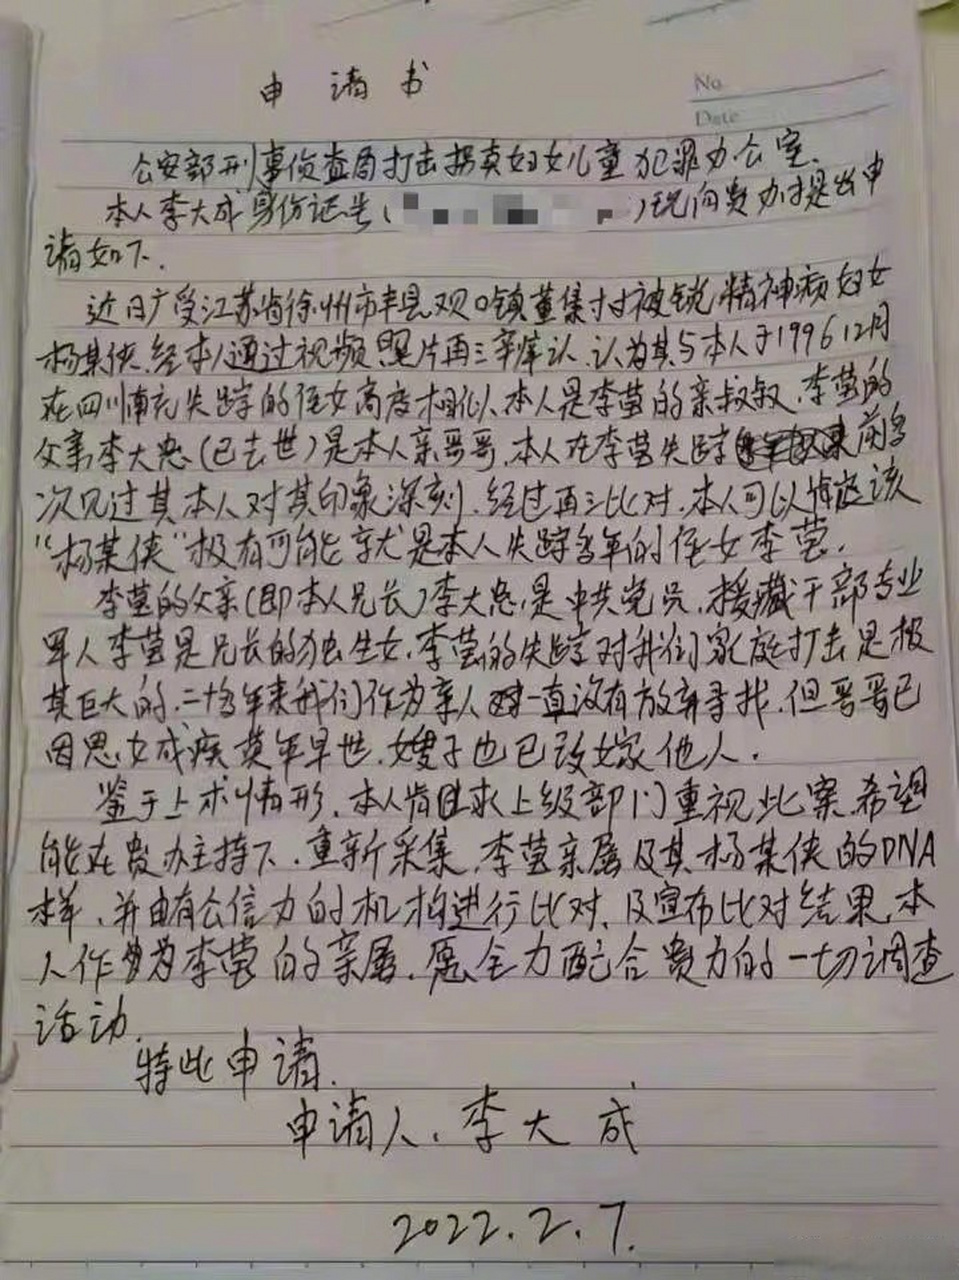 申请书
No
Date
公安部刑事侦查局打击拐卖妇女儿童犯罪办公室.
本人李大成身份证号()现向贵办提出申
请如下.
近日广受江苏省徐州市丰县观口镇董集村被锁精神病妇女
杨某侠.经本人通过视频照片再三辨认.认为其与本人于1996 12月
在四川南充失踪的侄女高度相似.本人是李莹的亲叔叔.李莹的
父亲李大忠(已去世)是本人亲哥哥.本人在李莹失踪前多
次见过其本人对其印象深刻.经过再三比对.本人可以该
"杨某侠"极有可能就是本人失踪多年的侄女李莹.
李莹的父亲(即本人兄长)李大忠,是中共党员.援藏干部专业
军人李莹是兄长的独生女.李莹的失踪对我们家庭打击是极
其巨大的.二十多年来我们作为亲人一直没有放弃寻找.但哥哥已
因思女成疾英年早世.嫂子也已改嫁他人.
鉴于上术情形.本人肯求上级部门重视此案.希望
能在贵办主持下.重新采集.李莹亲属及其杨某侠的DNA
样.并由有公信力的机构进行比对.及宣布比对结果.本
人作为李莹的亲属.愿全力配合贵办的一切调查
活动.
特此申请.
申请人.李大成
2022.2.7.